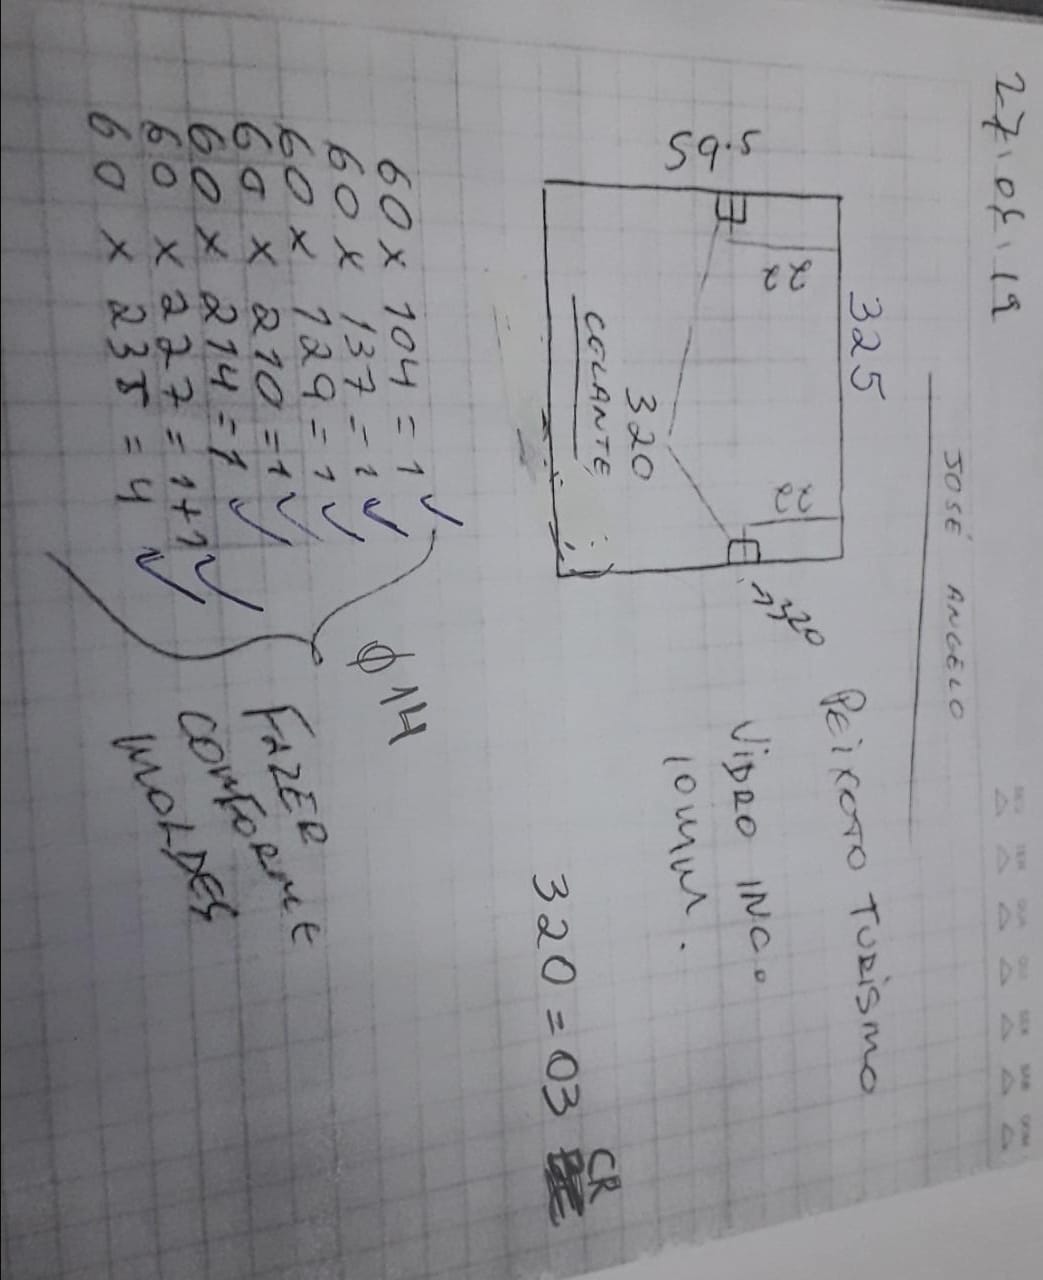 JOSÉ ANGELO
325
59.5
22
22
320
COLANTE
1320
PEIXOTO TURISMO
VIDRO INC.
10mm.
320 = 03 CR
60 x 104 = 1 ✓
60 x 137 = 1 ✓
60 x 129 = 1 ✓
60 x 210 = 1 ✓
60 x 214 = 1 ✓
60 x 227 = 1+1 ✓
60 x 235 = 4 ✓
φ 14
FAZER
CONFORME
MOLDES